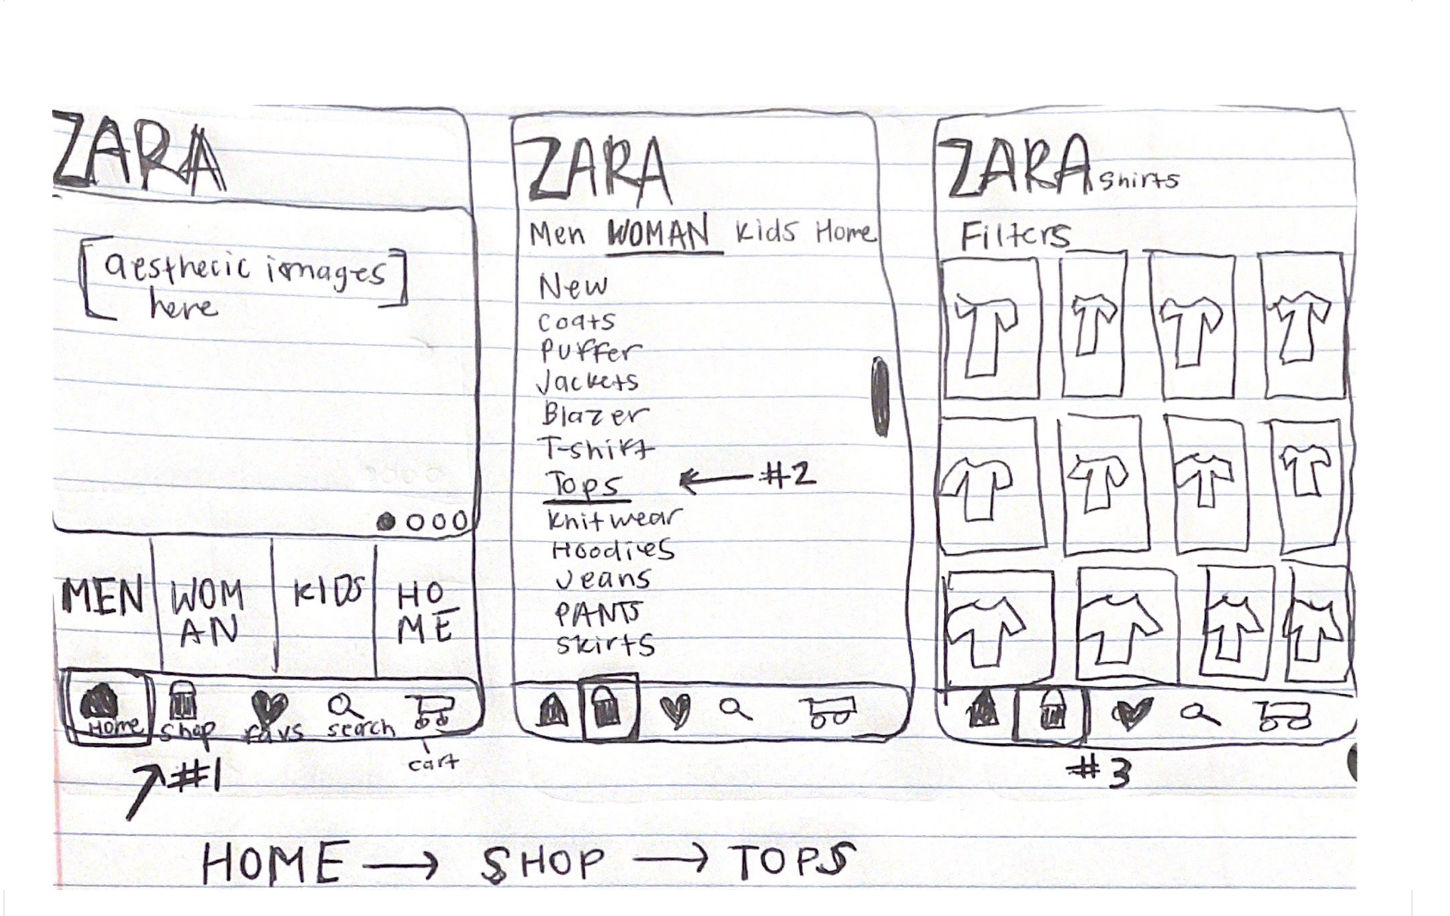 ZARA
[aesthetic images]
here
MEN
WOM
AN
KIDS
HO
ME
Home
shop
favs
search
cart
#1
ZARA
Men WOMAN Kids Home
New
Coats
Puffer
Jackets
Blazer
T-shirt
Tops
#2
Knitwear
Hoodies
Jeans
PANTS
Skirts
ZARA Shirts
Filters
#3
HOME → SHOP → TOPS